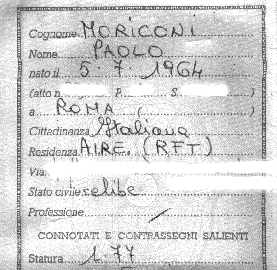 Cognome MORICONI
Nome PAOLO
nato il 5. 7. 1964
(atto n. P. S. )
a ROMA (
Cittadinanza Italiana
Residenza AIRE. (RFT)
Via
Stato civile celibe
Professione /
CONNOTATI E CONTRASSEGNI SALIENTI
Statura 1.77